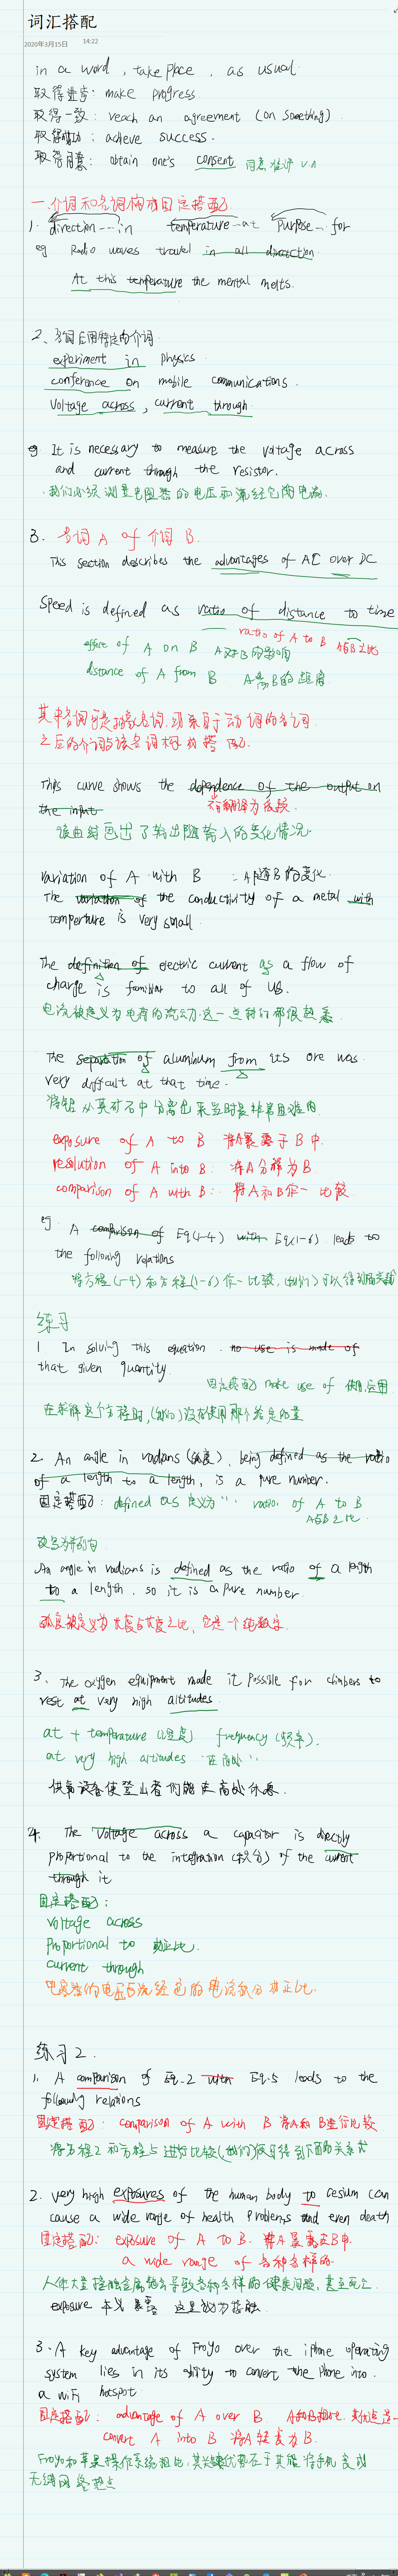 词汇搭配
2020年3月15日 14:22
in a word , take place , as usual
取得进步: make progress.
取得一致: reach an agreement (on something)
取得成功: achieve success.
取得同意: obtain one's consent 同意 准许 v.n
一. 介词和名词构成固定搭配
1. direction — in temperature — at purpose — for
eg Radio waves travel in all direction
At this temperature the mental melts.
2、名词后用特定的介词
experiment in physics
conference on mobile communications.
Voltage across , current through
eg It is necessary to measure the voltage across
and current through the resistor.
我们必须测量电阻器的电压和流经它的电流.
3. 名词 A of 介词 B.
This section describes the advantages of AC over DC
Speed is defined as ratio of distance to time
ratio of A to B A与B之比
effect of A on B A对B的影响
distance of A from B A离B的距离
其中名词可是抽象名词,或来自于动词的名词
之后的介词与该名词构成搭配.
This curve shows the dependence of the output on
the input 不翻译为依赖
该曲线画出了输出随输入的变化情况.
Variation of A with B : A随B的变化
The variation of the conductivity of a metal with
temperture is very small
The definition of electric current as a flow of
charge is familiar to all of us.
电流被定义为电荷的流动,这一点我们都很熟悉
The separation of aluminum from its ore was
very difficult at that time.
将铝从其矿石中分离出来当时是非常困难的
exposure of A to B 将A暴露于B中.
resolution of A into B: 将A分解为B
comparison of A with B: 将A和B作一比较
eg. A comparison of Eq(1-4) with Eq(1-6) leads to
the following relations
将方程(1-4)和方程(1-6)作一比较,(我们)可以得到下面关系
练习
1 In solving this equation . no use is made of
that given quantity.
固定搭配 make use of 使用,运用
在求解这个方程时,(我们)没有使用那个给定的量
2. An angle in radians (弧度), being defined as the ratio
of a length to a length, is a pure number.
固定搭配: defined as 定义为… ratio of A to B
A与B之比.
改为并列句
An angle in radians is defined as the ratio of a length
to a length. so it is a pure number.
弧度被定义为长度与长度之比,它是一个纯数字.
3. The oxygen equipment made it possible for climbers to
rest at very high altitudes.
at + temperature (温度) frequency (频率).
at very high altitudes 在高处
供氧设备使登山者们能在高处休息.
4. The voltage across a capacitor is directly
proportional to the integration (积分) of the current
through it
固定搭配:
voltage across
proportional to 成正比.
current through
电容器的电压与流经它的电流积分成正比.
练习2.
1. A comparison of Eq.2 with Eq.5 leads to the
following relations
固定搭配: comparison of A with B 将A和B进行比较
将方程2和方程5进行比较(我们)便可得到下面的关系式
2. Very high exposures of the human body to cesium can
cause a wide range of health problems and even death
固定搭配: exposure of A to B. 将A暴露在B中.
a wide range of 各种各样的
人体大量接触金属铯会导致各种各样的健康问题,甚至死亡.
exposure 本义暴露 这里改为接触.
3. A key advantage of Froyo over the iphone operating
system lies in its ability to convert the phone into
a WiFi hotspot.
固定搭配: advantage of A over B A和B相比,其优点是…
convert A into B 将A转变为B.
Froyo和苹果操作系统相比,其关键优势在于其能将手机变成
无线网络热点